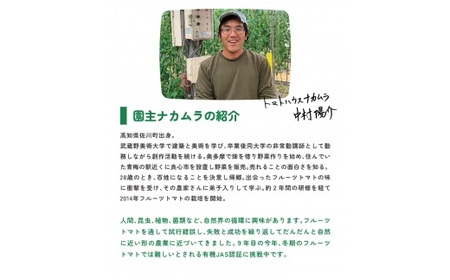 トマトハウスナカムラ
中村陽介
園主ナカムラの紹介
高知県佐川町出身。
武蔵野美術大学で建築と美術を学び、卒業後同大学の非常勤講師として勤
務しながら創作活動を続ける。奥多摩で畑を借り野菜作りを始め、住んでい
た青梅の駅近くに良心市を設置し野菜を販売。売れることの面白さを知る。
28歳のとき、百姓になることを決意し帰郷。出会ったフルーツトマトの味
に衝撃を受け、その農家さんに弟子入りして学ぶ。約2年間の研修を経て
2014年フルーツトマトの栽培を開始。
人間、昆虫、植物、菌類など、自然界の循環に興味があります。フルーツ
トマトを通して試行錯誤し、失敗と成功を繰り返してだんだんと自然
に近い形の農業に近づいてきました。9年目の今年、冬期のフルーツ
トマトでは難しいとされる有機JAS認証に挑戦中です。